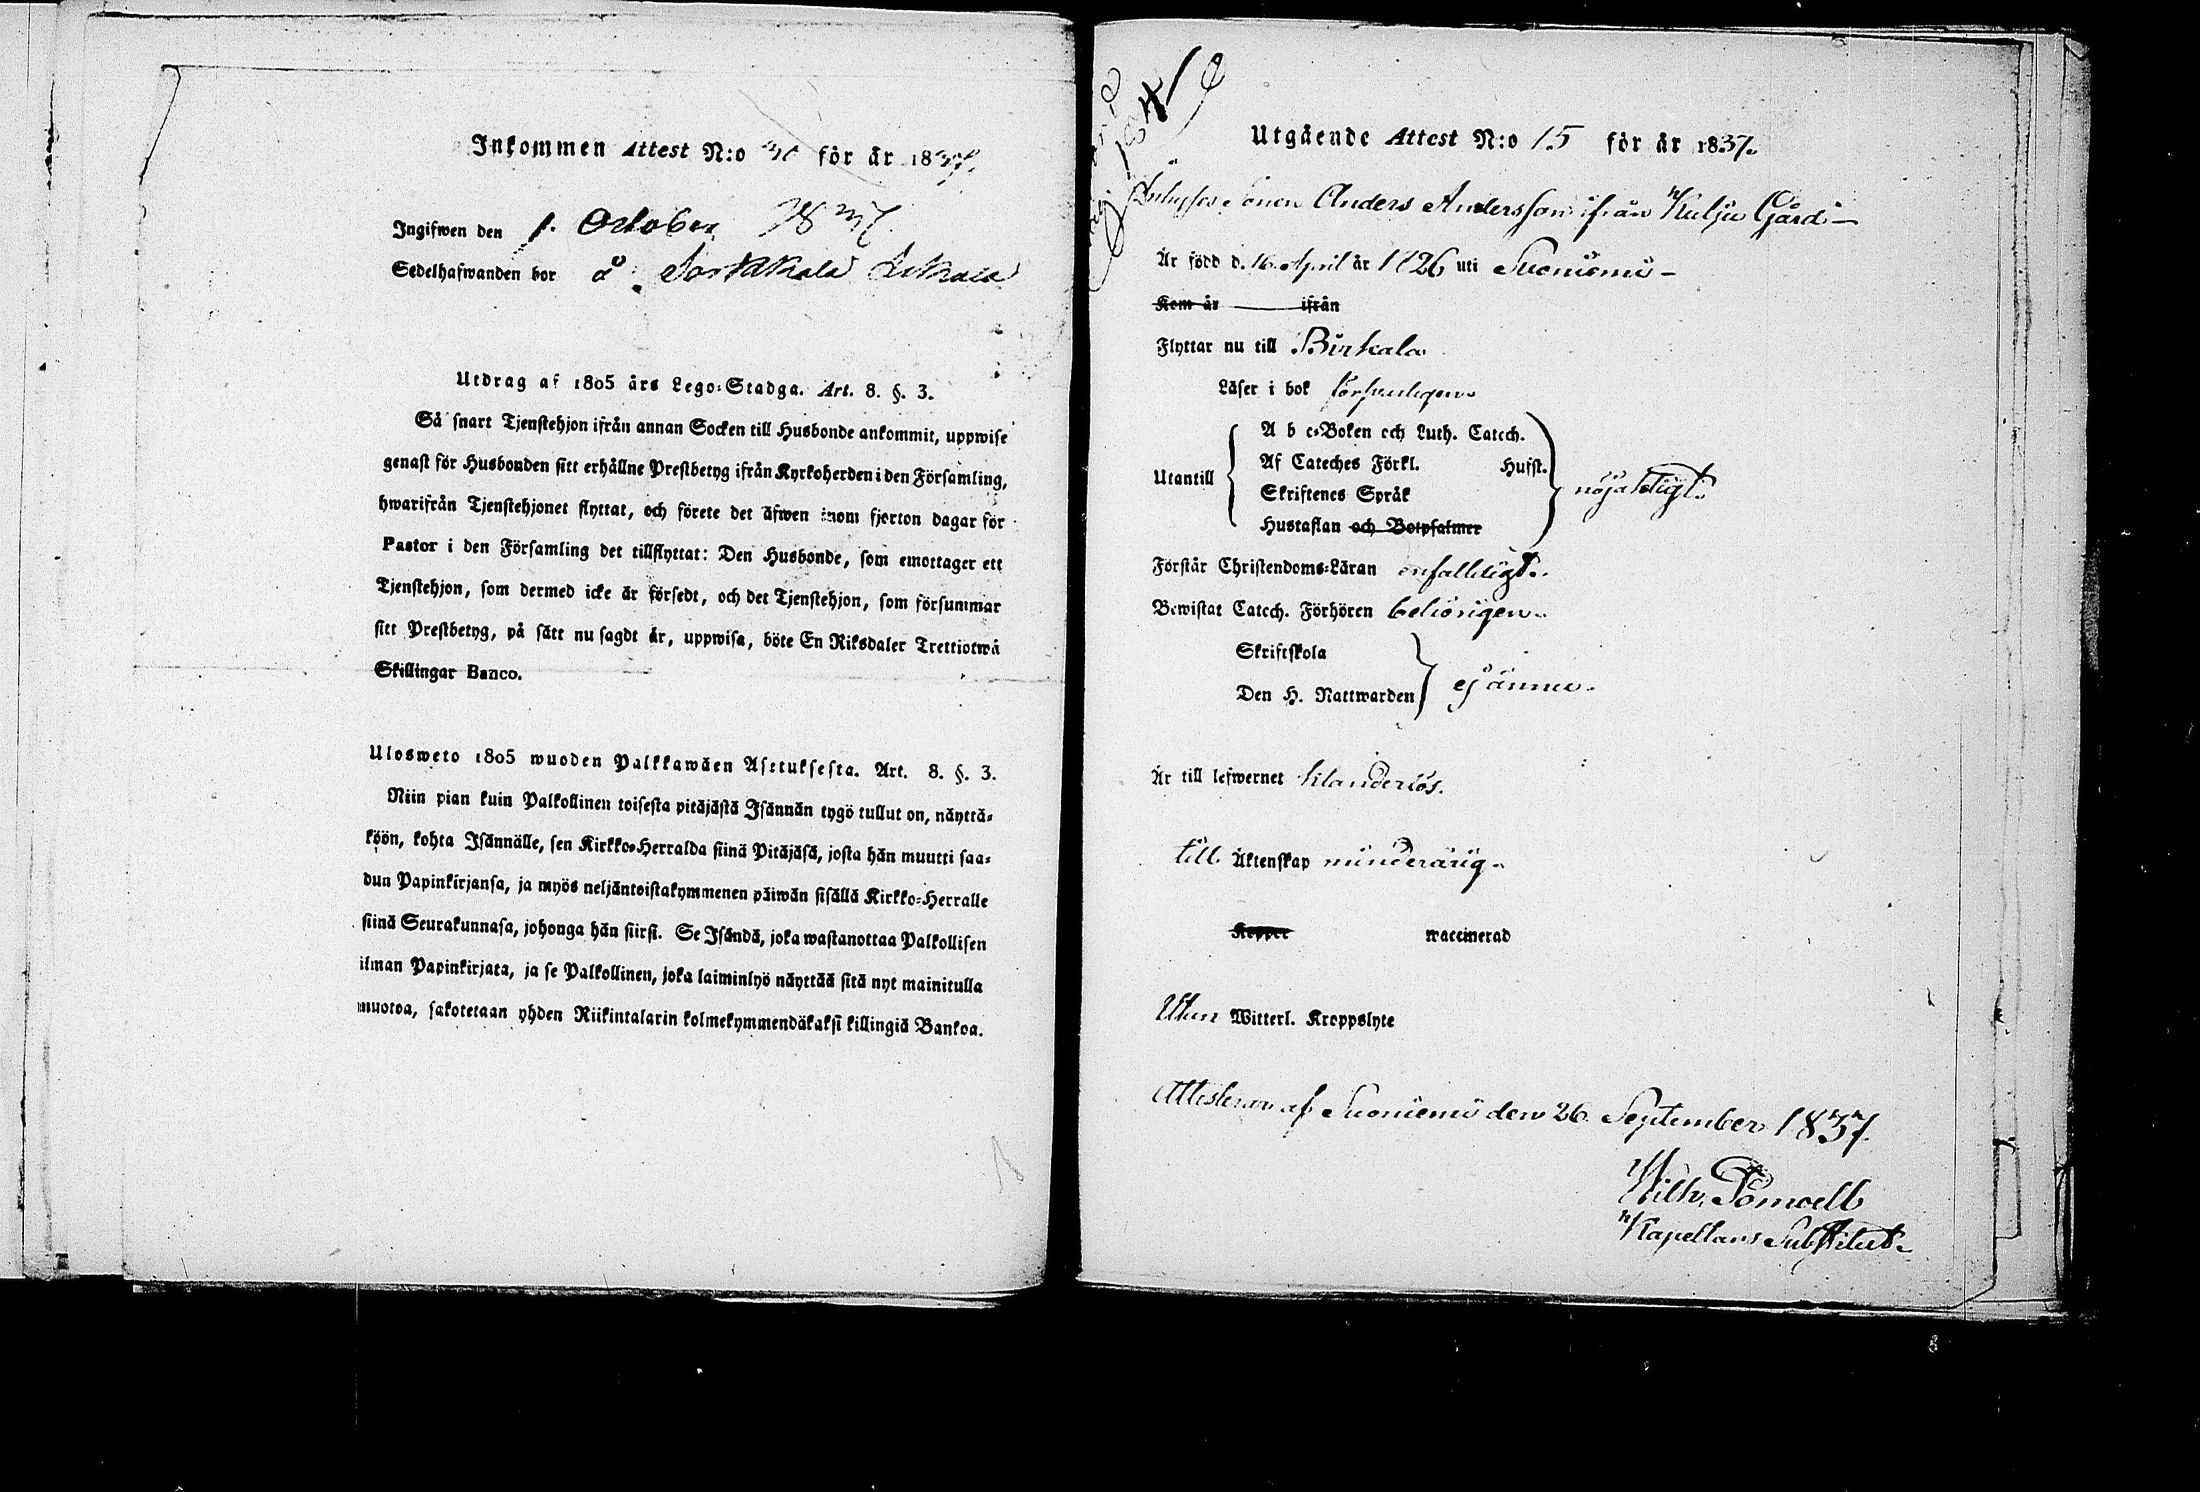 Inkommen Attest N:o 30 för år 1837.
Ingifwen den 1. October 1837.
Sedelhafwanden bor å Sorkkala
Utdrag af 1805 års Lego-Stadga. Art. 8. §. 3.
Så snart Tjenstehjon ifrån annan Socken till Husbonde ankommit, uppwise
genast för Husbonden sitt erhållne Prestbetyg ifrån Kyrkoherden i den Församling,
hwarifrån Tjenstehjonet flyttat, och förete det äfwen inom fjorton dagar för
Pastor i den Församling det tillflyttat: Den Husbonde, som emottager ett
Tjenstehjon, som dermed icke är försedt, och det Tjenstehjon, som försummar
sitt Prestbetyg, på sätt nu sagdt är, uppwisa, böte En Riksdaler Trettiotwå
Skillingar Banco.
Ulosweto 1805 wuoden Palkkawäen Asetuksesta. Art. 8. §. 3.
Niin pian kuin Palkollinen toisesta pitäjästä Isännän tygö tullut on, näyttä-
köön, kohta Isännälle, sen Kirkko-Herralda siinä Pitäjäsä, josta hän muutti saa-
dun Papinkirjansa, ja myös neljäntoistakymmenen päiwän sisällä Kirkko-Herralle
siinä Seurakunnasa, johonga hän siirsi. Se Isändä, joka wastanottaa Palkollisen
ilman Papinkirjata, ja se Palkollinen, joka laiminlyö näyttää sitä nyt mainitulla
muotoa, sakotetaan yhden Riikintalarin kolmekymmendäkaksi killingiä Bankoa.
Utgående Attest N:o 15 för år 1837.
Inhyses Sonen Anders Andersson ifrån Kulju Gård
Är född d. 16 April år 1826 uti Suoniemi
Kom år ifrån
Flyttar nu till Birkala
Läser i bok försvarligen
A b c-Boken och Luth. Catech.
Af Cateches Förkl. Husst.
Utantill nöjaktligt.
Skriftenes Språk
Hustaflan och Botpsalmer
Förstår Christendoms-Läran enfalldigt.
Bewistat Catech. Förhören behörigen.
Skriftskola
Den H. Nattwarden ej ännu.
Är till lefwernet klanderlös.
till Äktenskap minderårig.
Koppor waccinerad
Utan Witterl. Kroppslyte
Attesteras af Suoniemi den 26. September 1837.
Wilh. Pomoell
Kapellans Substitut.